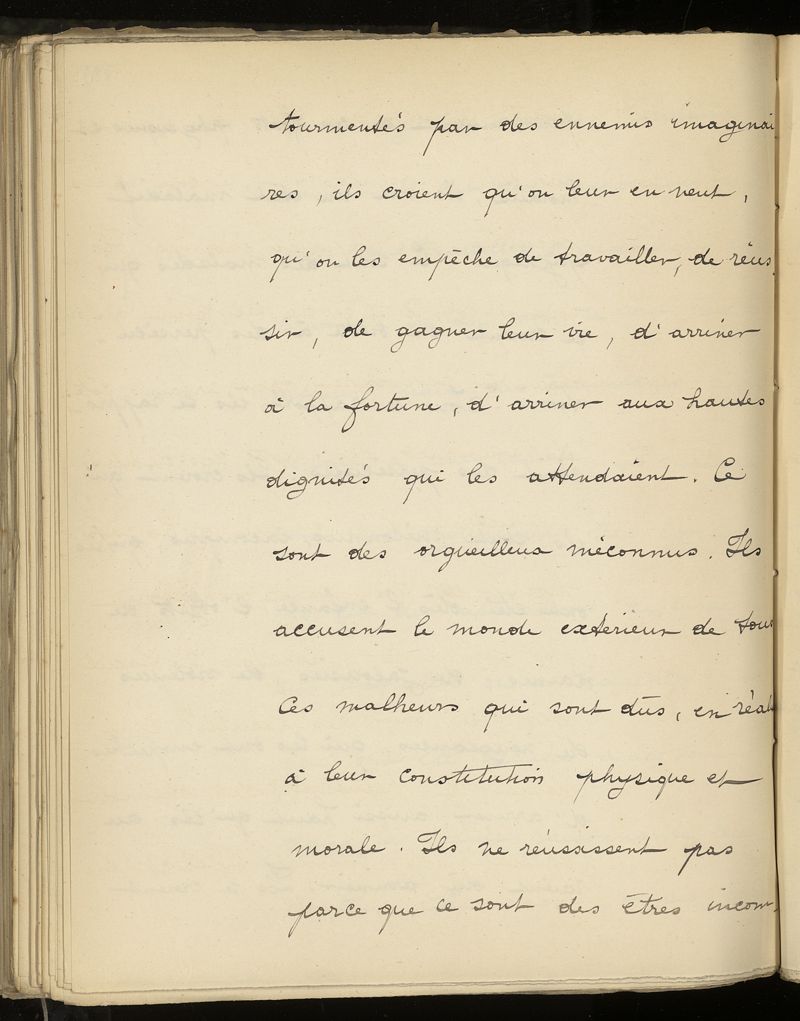 tourmentés par des ennemis imaginai
res, ils croient qu'on leur en veut,
qu'on les empêche de travailler, de réus
sir, de gagner leur vie, d'arriver
à la fortune, d'arriver aux hautes
dignités qui les attendaient. Ce
sont des orgueilleux méconnus. Ils
accusent le monde extérieur de tous
ces malheurs qui sont dûs, en réal
à leur constitution physique et
morale. Ils ne réussissent pas
parce que ce sont des êtres incom